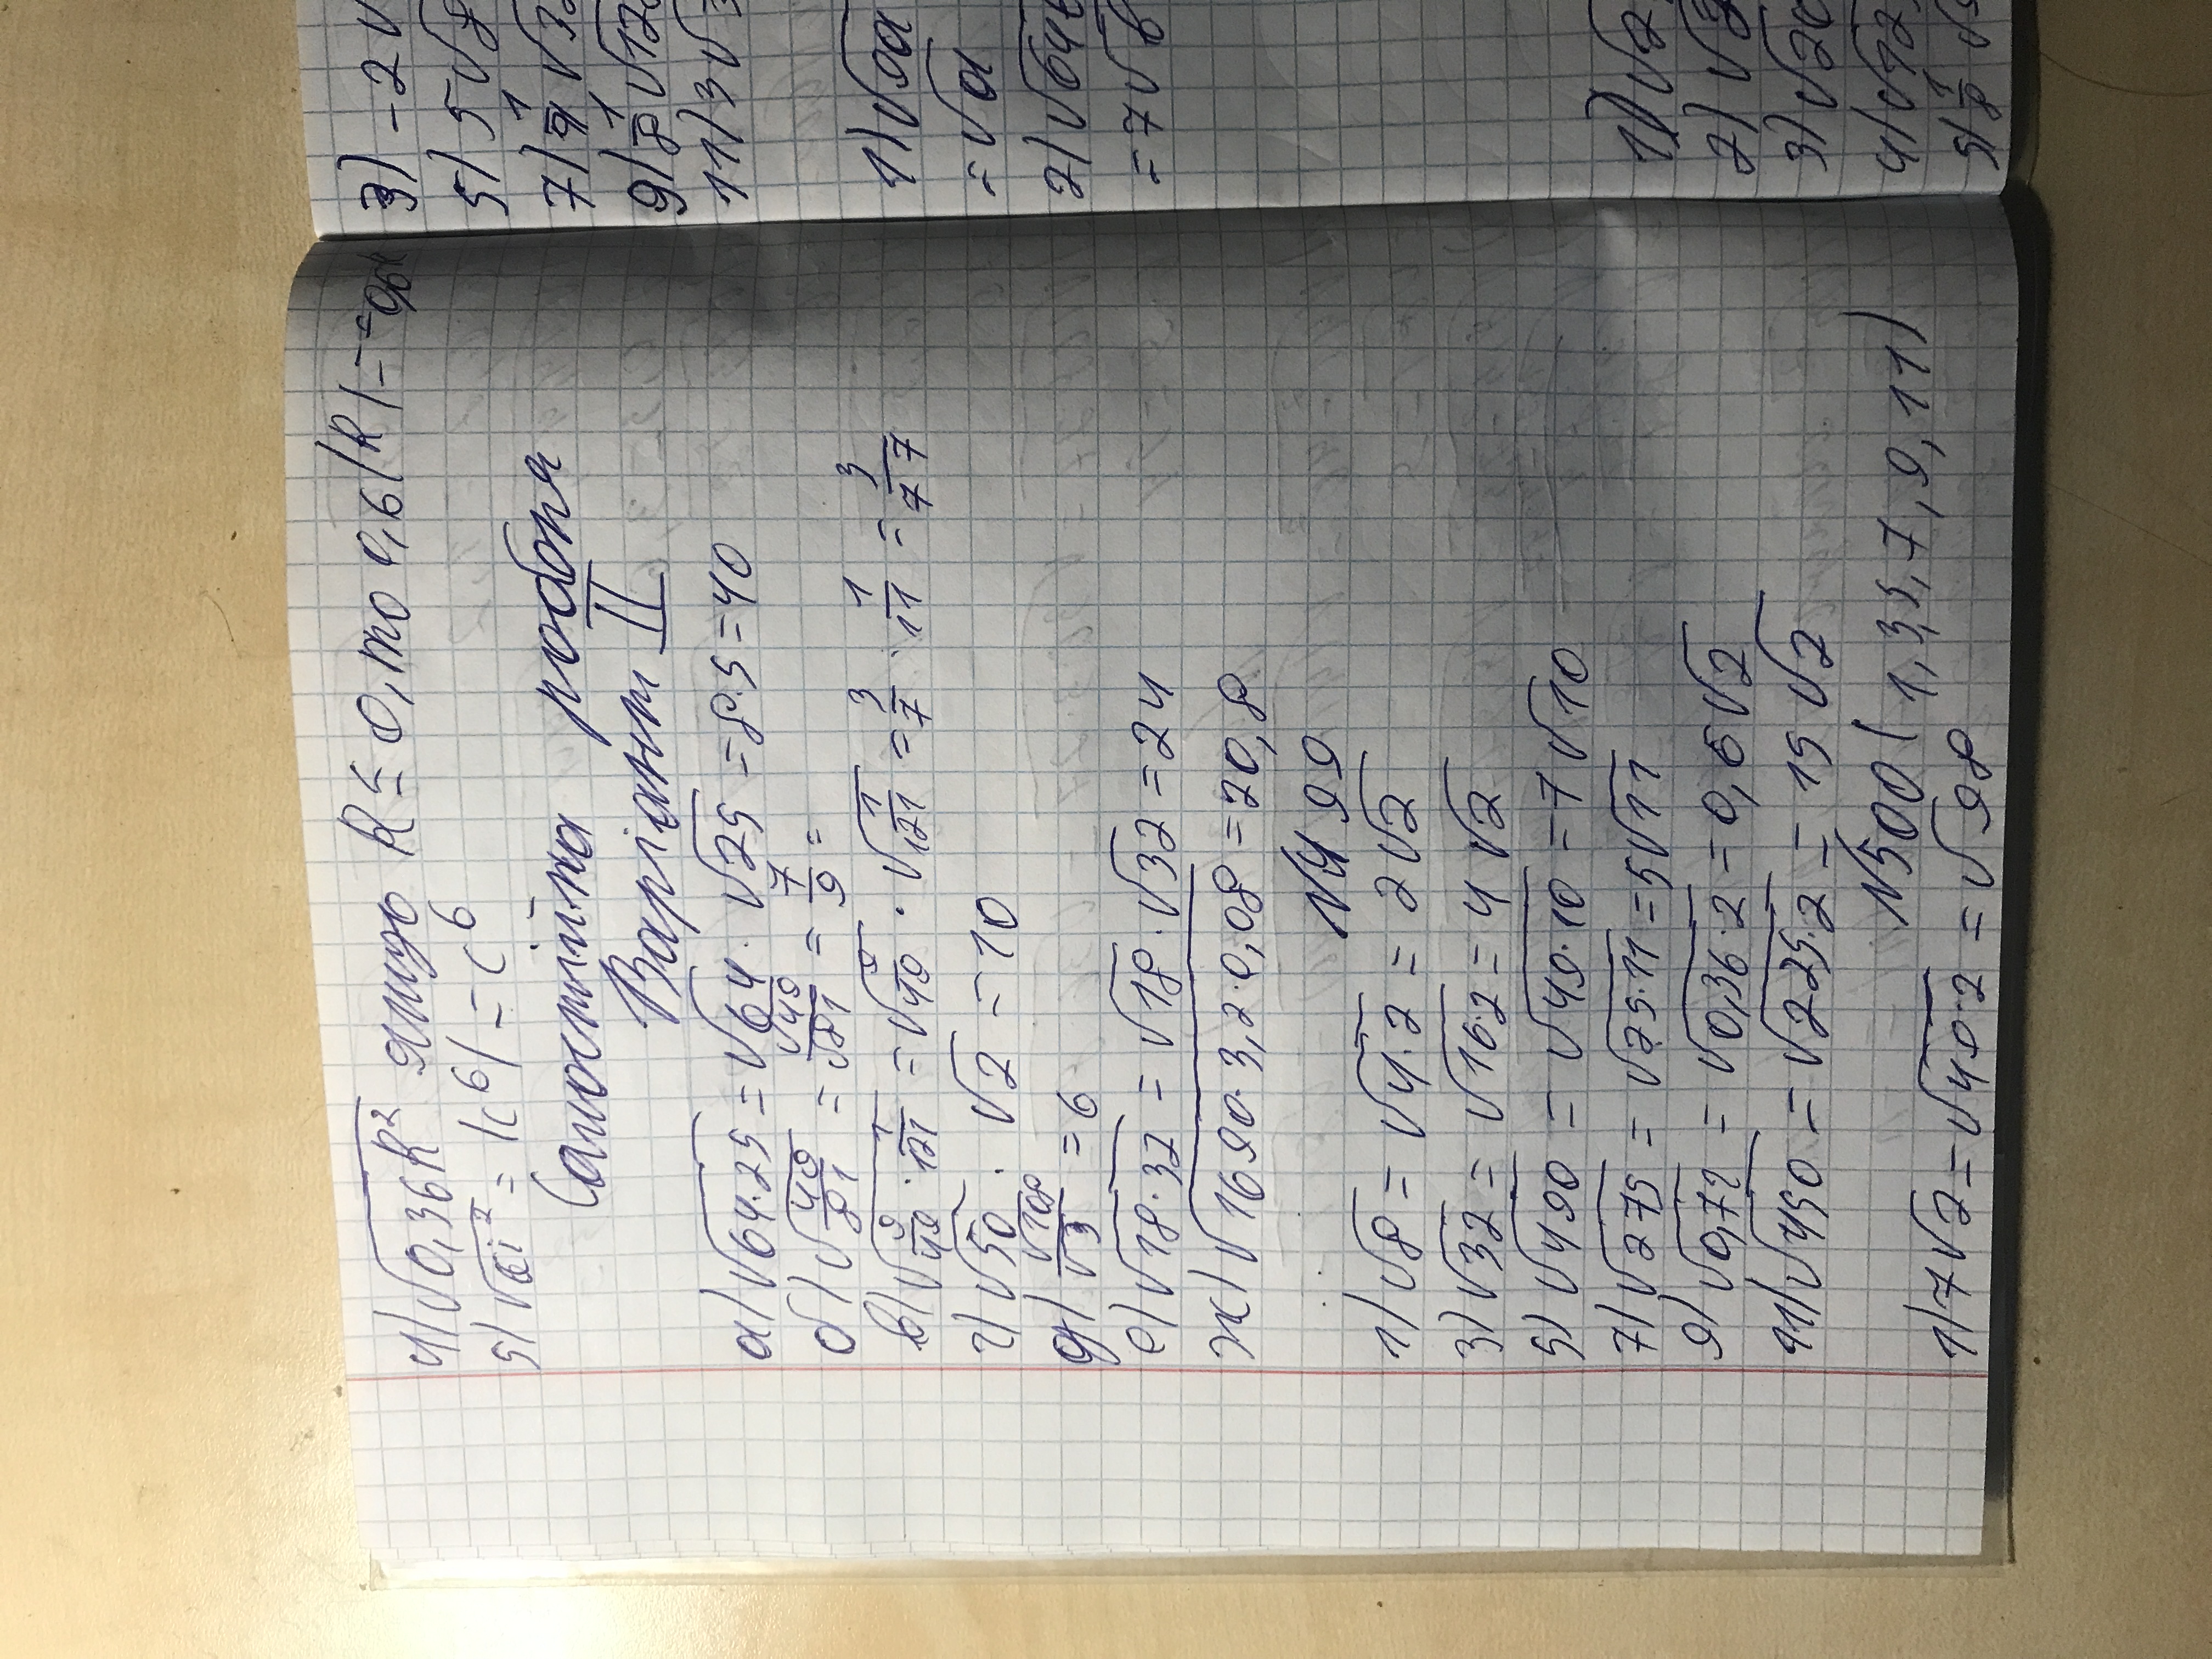 4) √0,36k² якщо k ≤ 0, то 0,6|k| = -0,6k
5) = |c⁶| = c⁶
Самостійна робота
Варіант II
а) √64·25 = √64 · √25 = 8·5 = 40
б) √49/81 = √49/√81 = 7/9 =
в) √9/49 · 1/121 = √9/49 · √1/121 = 3/7 · 1/11 = 3/77
г) √50 · √2 = 10
д) √108/√3 = 6
е) √18·32 = √18 · √32 = 24
ж) √1690·3,2·0,08 = 20,8
№499
1) √8 = √4·2 = 2√2
3) √32 = √16·2 = 4√2
5) √490 = √49·10 = 7√10
7) √275 = √25·11 = 5√11
9) √0,72 = √0,36·2 = 0,6√2
11) √450 = √225·2 = 15√2
№500 (1,3,5,7,9,11)
1) 7√2 = √49·2 = √98
3) -2√
5) 5√
7) 1/9 √3
9) 1/8 √12
11) 3√3
1) √9a
= √a
2) √64b
= 7√b
1) √2
2) √
3) √20
4) √
5) 1/8 √5